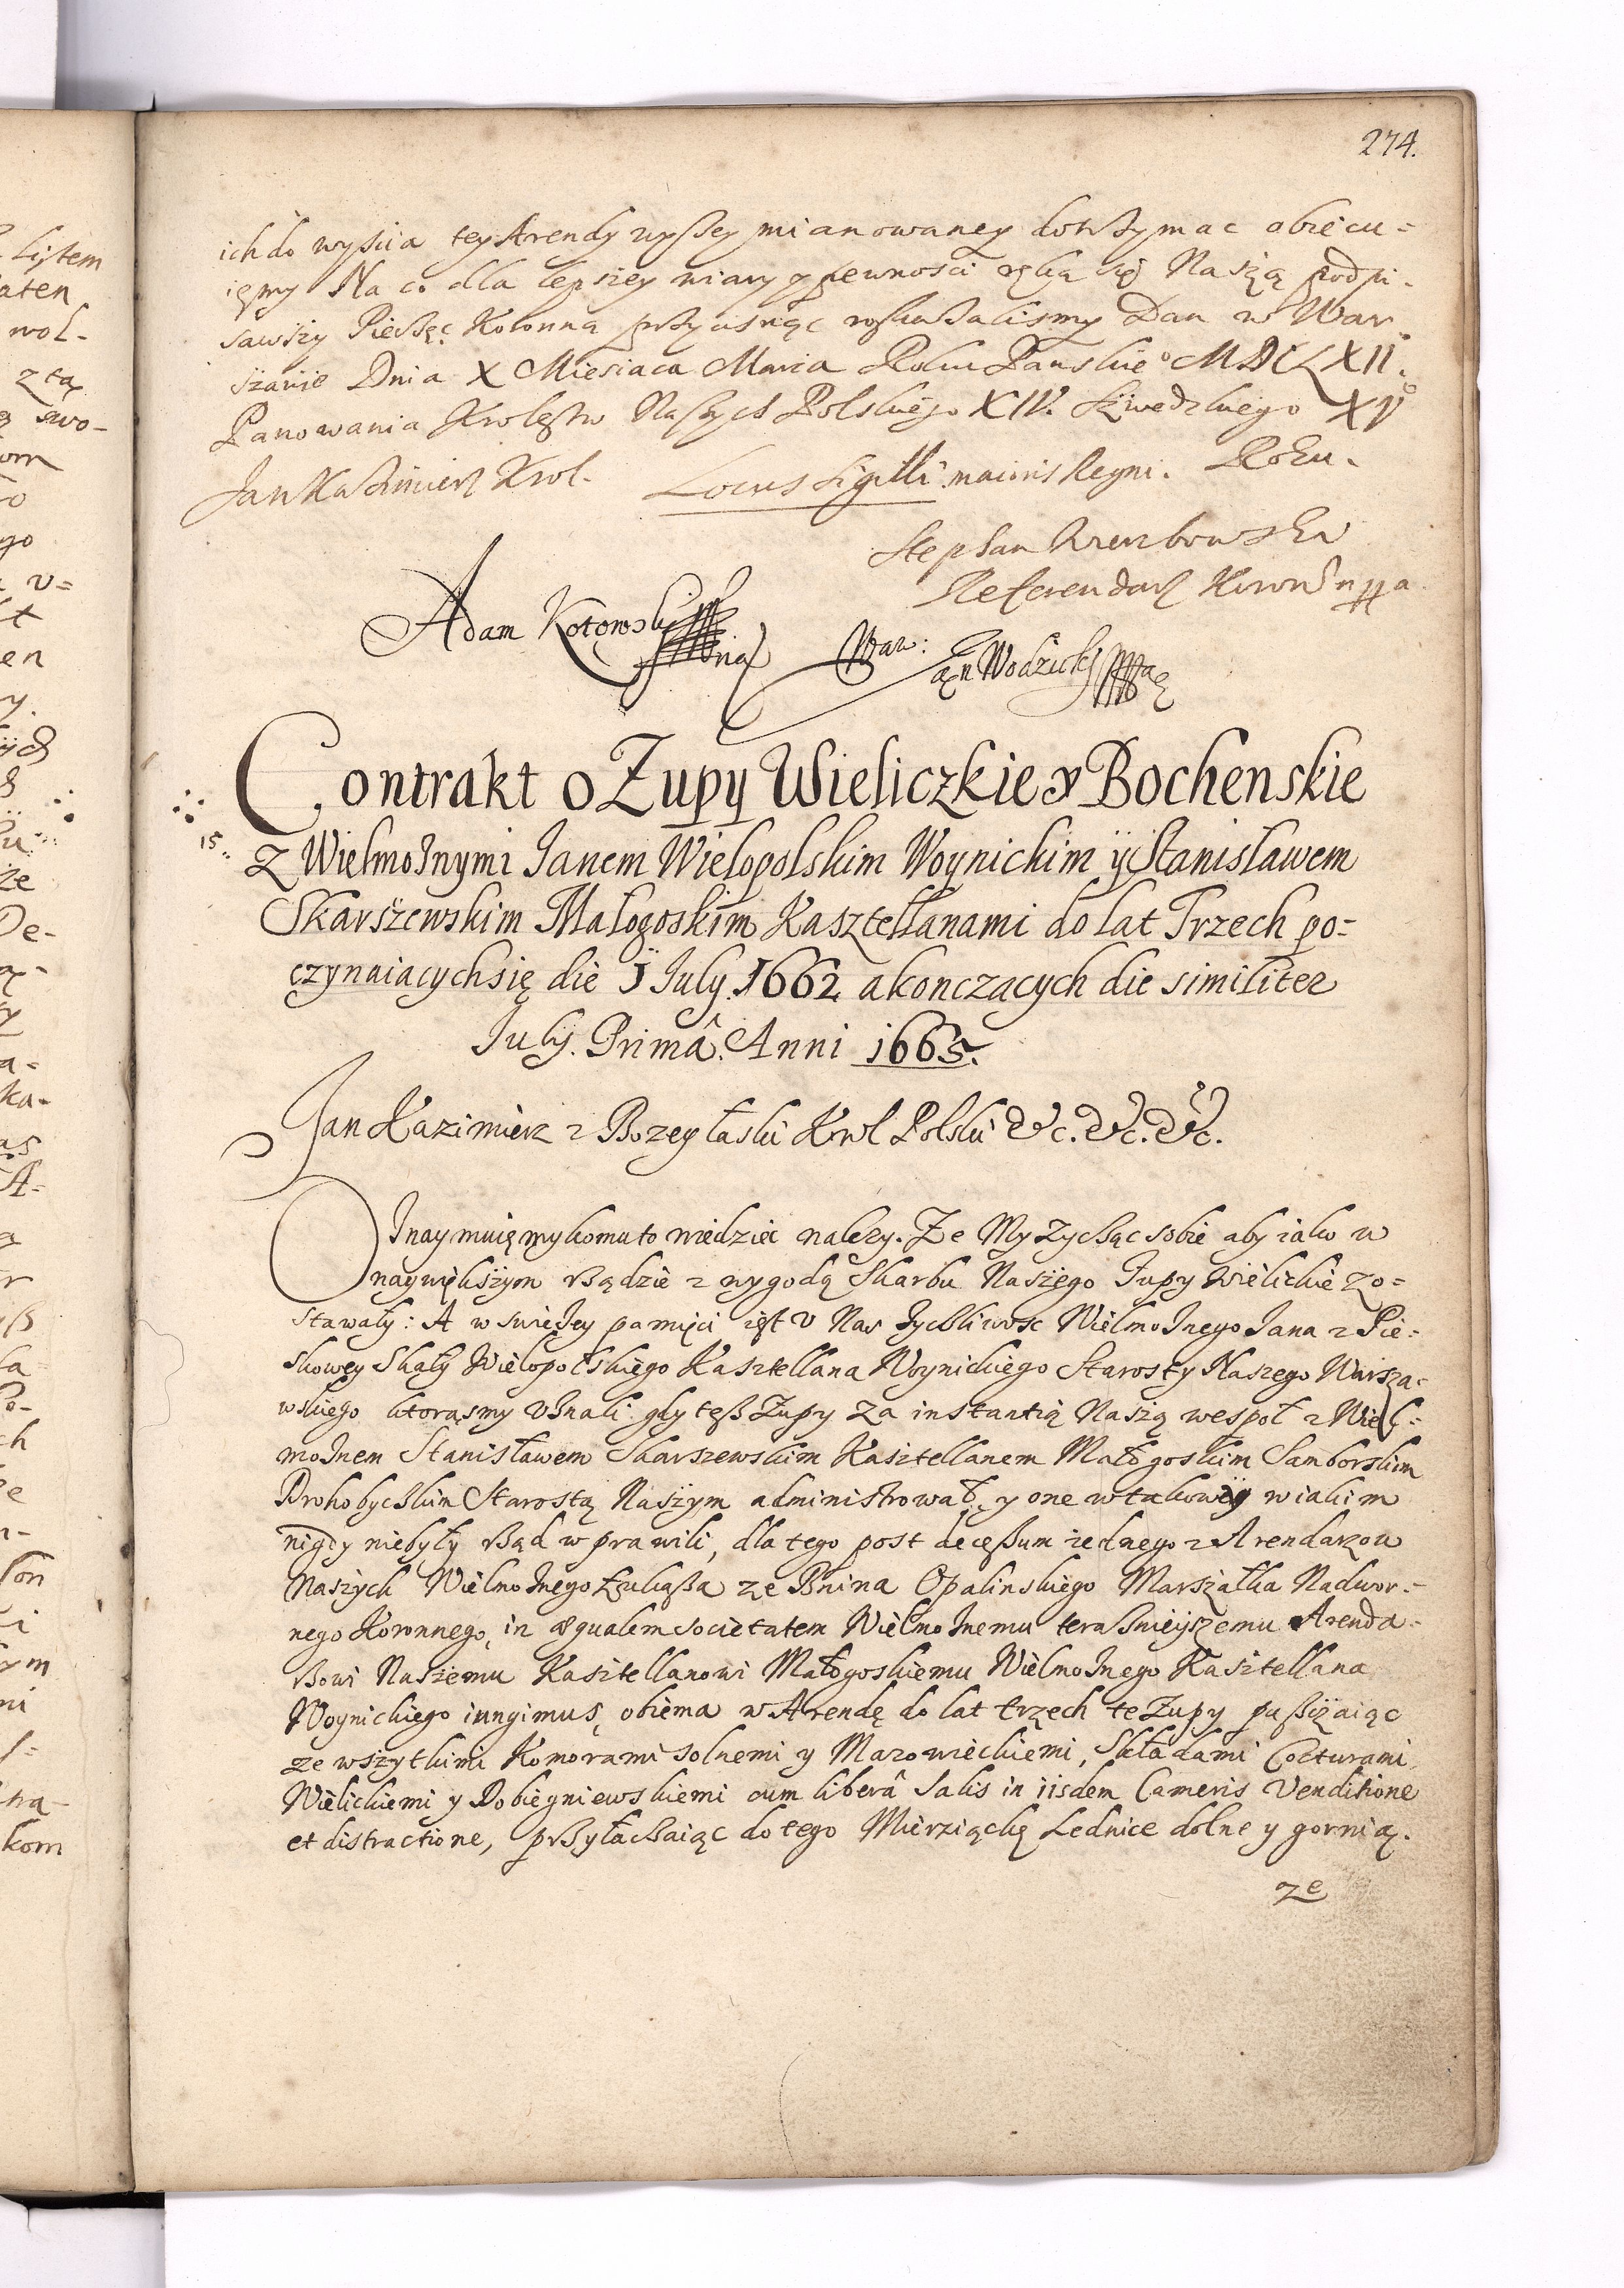 274.
ich do wyścia tey Arendy wyszey mianowaney dotrzymac obiecu=
ięmy Na co dla lepszey wiary y pewnosci ręką się Naszą podpi-
sawszy Pieczęc Koronną przycisnąc roskazalismy Dan w War
szawie Dnia X Miesiaca Marca Roku Panskieo MDCLXII.
Panowania Krolestw Naszych Polskiego XIV. Szwedzkiego XVo
Roku.
Jan Kazimierz Krol. Locus Sigilli maioris Regni.
Stephan Wierzbowski
Referendarz Koronny
Adam Kotowski
Jan Wodzicki
Contrakt o Zupy Wieliczkie y Bochenskie
15
z Wielmoznymi Janem Wielopolskim Woynickim ÿ Stanisławem
Skarszewskim Małogoskim Kasztellanami do lat Trzech po=
czynaiacych się die 1 July. 1662 a konczacych die similiter
July. Primâ. Anni 1665.
Jan Kazimierz z Bozey łaski Krol Polski &c. &c. &c.
Oznaymuięmy komu to wiedziec nalezy. Ze My Zycząc sobie aby iako w
naywiększym rządzie z wygodą Skarbu Naszego Zupy Wielickie zo=
stawały: A w swiezey pamięci iest v Nas zyczliwosc Wielmoznego Jana z Pie=
skowey Skały Wielopolskiego Kasztellana Woynickiego Starosty Naszego Warsza=
wskiego ktorąsmy vznali gdy tesz Zupy za instantią Naszą wespoł z Wiel=
moznem Stanisławem Skarszewskim Kasztellanem Małogoskim Samborskim
Drohobyczkim Starostą Naszym administrował, y one w takowÿ w iakim
nigdy niebyły rząd wprawili, dla tego post decessum iednego z Arendarzow
Naszych Wielmoznego Łukasza ze Bnina Opalinskiego Marszałka Nadwor=
nego Koronnego, in æqualem societatem Wielmoznemu teraznieyszemu Arenda=
rzowi Naszemu Kasztellanowi Małogoskiemu Wielmoznego Kasztellana
Woynickiego iungimus, obiema w Arendę do lat trzech te Zupy puszczaiąc
ze wszytkimi Komorami solnemi y Mazowieckiemi, Składami Cocturami
Wielickiemi y Dobiegniewskiemi cum liberâ Salis in iisdem Cameris Venditione
et distractione, przyłaczaiąc do tego Mierziączkę Lednice dolne y gornią.
ze